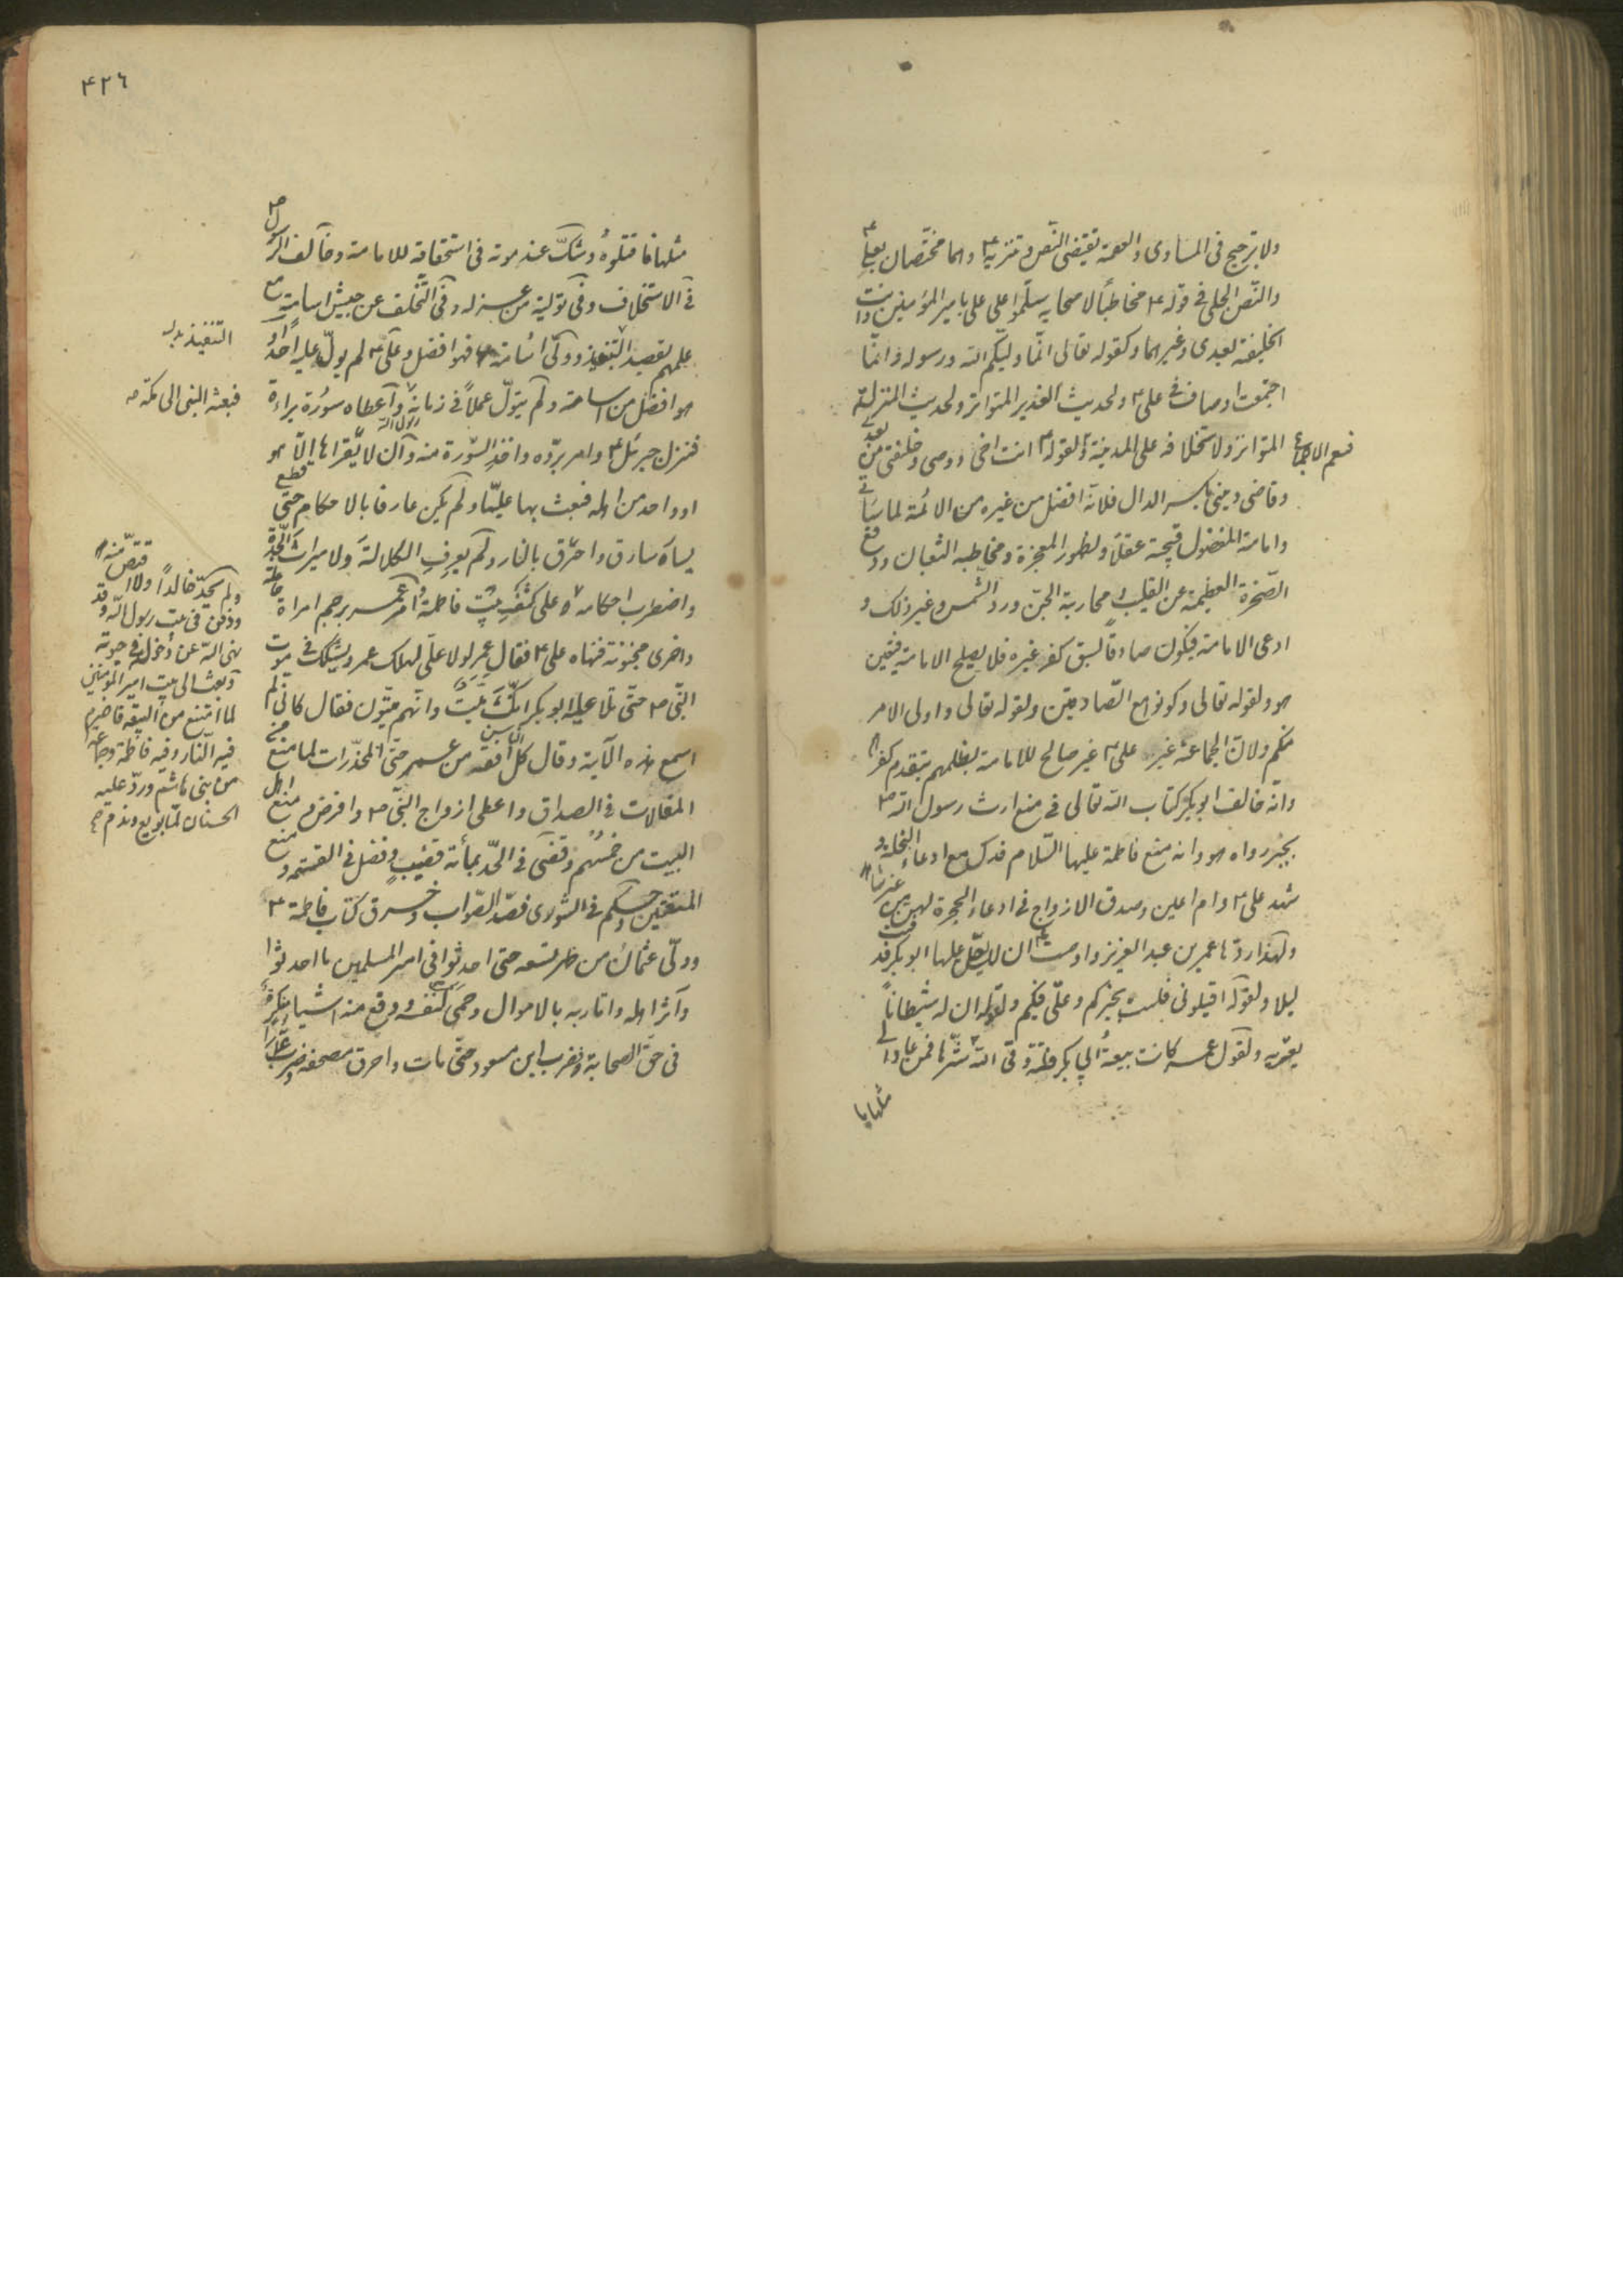 ولا ترجيح فى المساوى والعصمة تقتضى النص وسيرته ع وهما مختصان بعلى ع
والنص الجلى فى قوله ع مخاطبًا لاصحابه سلموا على على بامير المؤمنين وانت
الخليفة بعدى وغيرهما وكقوله تعالى انما وليكم الله ورسوله وانما
اجتمعت اوصاف فى على ع ولحديث الغدير المتواتر ولحديث المنزلة
المتواتر ولاستخلافه على المدينة فيعم الاجماع ولقوله ع انت اخى ووصى وخليفتى من بعدى
وقاضى دينى بكسر الدال فلانه افضل من غيره من الائمة لما سياتى
وامامة المفضول قبيحة عقلاً ولظهور المعجزة ومخاطبه الثعبان ورفع
الصخرة العظيمة عن القليب ومحاربة الجن ورد الشمس وغير ذلك و
ادعى الامامة فيكون صادقًا لسبق كفر غيره فلا يصلح الامامة فيتعين
هو ولقوله تعالى وكونوا مع الصادقين ولقوله تعالى واولى الامر
منكم ولان الجماعة غير على ع غير صالح للامامة لظلمهم بتقدم كفرهم
وانه خالف ابو بكر كتاب الله تعالى فى منع ارث رسول الله ص
بخبر رواه هو وانه منع فاطمة عليها السلام فدك مع ادعاء النحلة و
شهد على ع وام ايمن وصدق الازواج فى ادعاء الحجرة لهن من غير شاهد
ولهذا ردها عمر بن عبد العزيز واوصت ان لا يصلى عليها ابو بكر فدفنت
ليلا ولقوله اقيلونى فلست بخيركم وعلى فيكم ولقوله ان له شيطانًا
يعتريه ولقول عمر كانت بيعة ابى بكر فلتة وقى الله شرها فمن عاد الى
مثلها
٤٢٦
مثلها فاقتلوه وشك عند موته فى استحقاقه للامامة وخالف الرسول ص
فى الاستخلاف وفى تولية من عزله وفى التخلف عن جيش اسامة مع
علمهم بقصد التنفيذ وولى اسامة عليهم فهو افضل وعلى ع لم يول عليه احدًا و
هو افضل من اسامة ولم يتول عملاً فى زمانه واعطاه سورة براءة
فنزل جبرئيل ع وامر برده واخذ السورة منه وان لا يقراها الا هو
او واحد من اهله فبعث بها عليًا ولم يكن عارفا بالاحكام حتى قطع
يسار سارق واحرق بالنار ولم يعرف الكلالة ولا ميراث الجدة
واضطرب احكامه على كشف بيت فاطمة وامر عمر برجم امراة حاملة
واخرى مجنونة فنهاه على ع فقال عمر لولا على لهلك عمر وتشكك فى موت
النبى ص حتى تلا عليه ابو بكر انك ميت وانهم ميتون فقال كانى لم
اسمع هذه الآية وقال كل الناس افقه من عمر حتى المخدرات لما منع من
المغالات فى الصداق واعطى ازواج النبى ص وافرض ومنع اهل
البيت من خمسهم وقضى فى الحد بمائة قضيب وفضل فى القسمة ومنع
المتعتين وحكم فى الشورى بضد الصواب وخرق كتاب فاطمة ع
وولى عثمان من ظهر فسقه حتى احدثوا فى امر المسلمين ما احدثوا
وآثر اهله واقاربه بالاموال وحمى لنفسه ووقع منه اشياء منكرة
فى حق الصحابة وضرب ابن مسعود حتى مات واحرق مصحفه وضرب عمارًا
التنفيذ بدل
فبعثه النبى الى مكة
ولم يحد خالدًا ولا اقتص منه
ودفن فى بيت رسول الله وقد
نهى الله عن دخوله فى حيوته
وبعث الى بيت امير المؤمنين
لما امتنع من البيعة فاضرم
فيه النار وفيه فاطمة وجماعة
من بنى هاشم ورد عليه
الحسنان لما بويع وندم